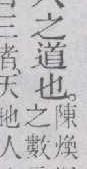 之道也。
陳煥
之數
三者、天地人